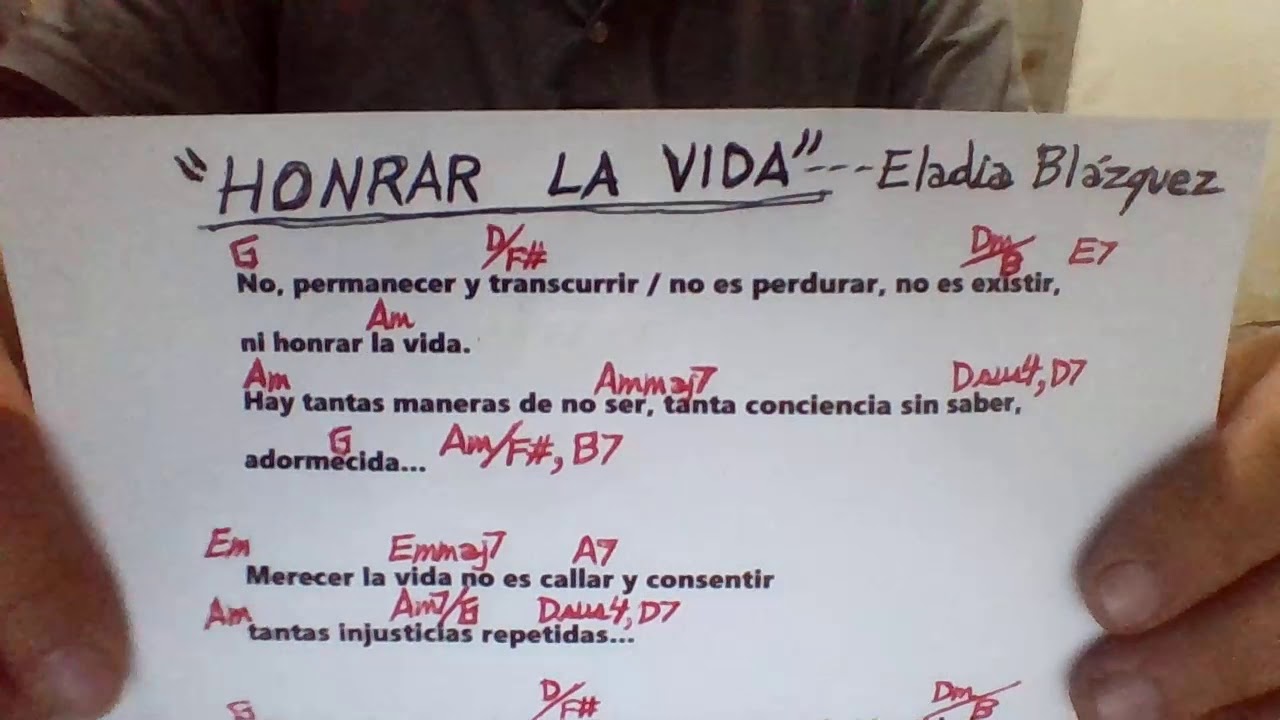 "HONRAR LA VIDA"---Eladia Blázquez
G D/F# Dm/B E7
No, permanecer y transcurrir / no es perdurar, no es existir,
Am
ni honrar la vida.
Am Ammaj7 Dsus4, D7
Hay tantas maneras de no ser, tanta conciencia sin saber,
G Am/F#, B7
adormecida...
Em Emmaj7 A7
Merecer la vida no es callar y consentir
Am Am7/G Dsus4, D7
tantas injusticias repetidas...
G D/F# Dm/B